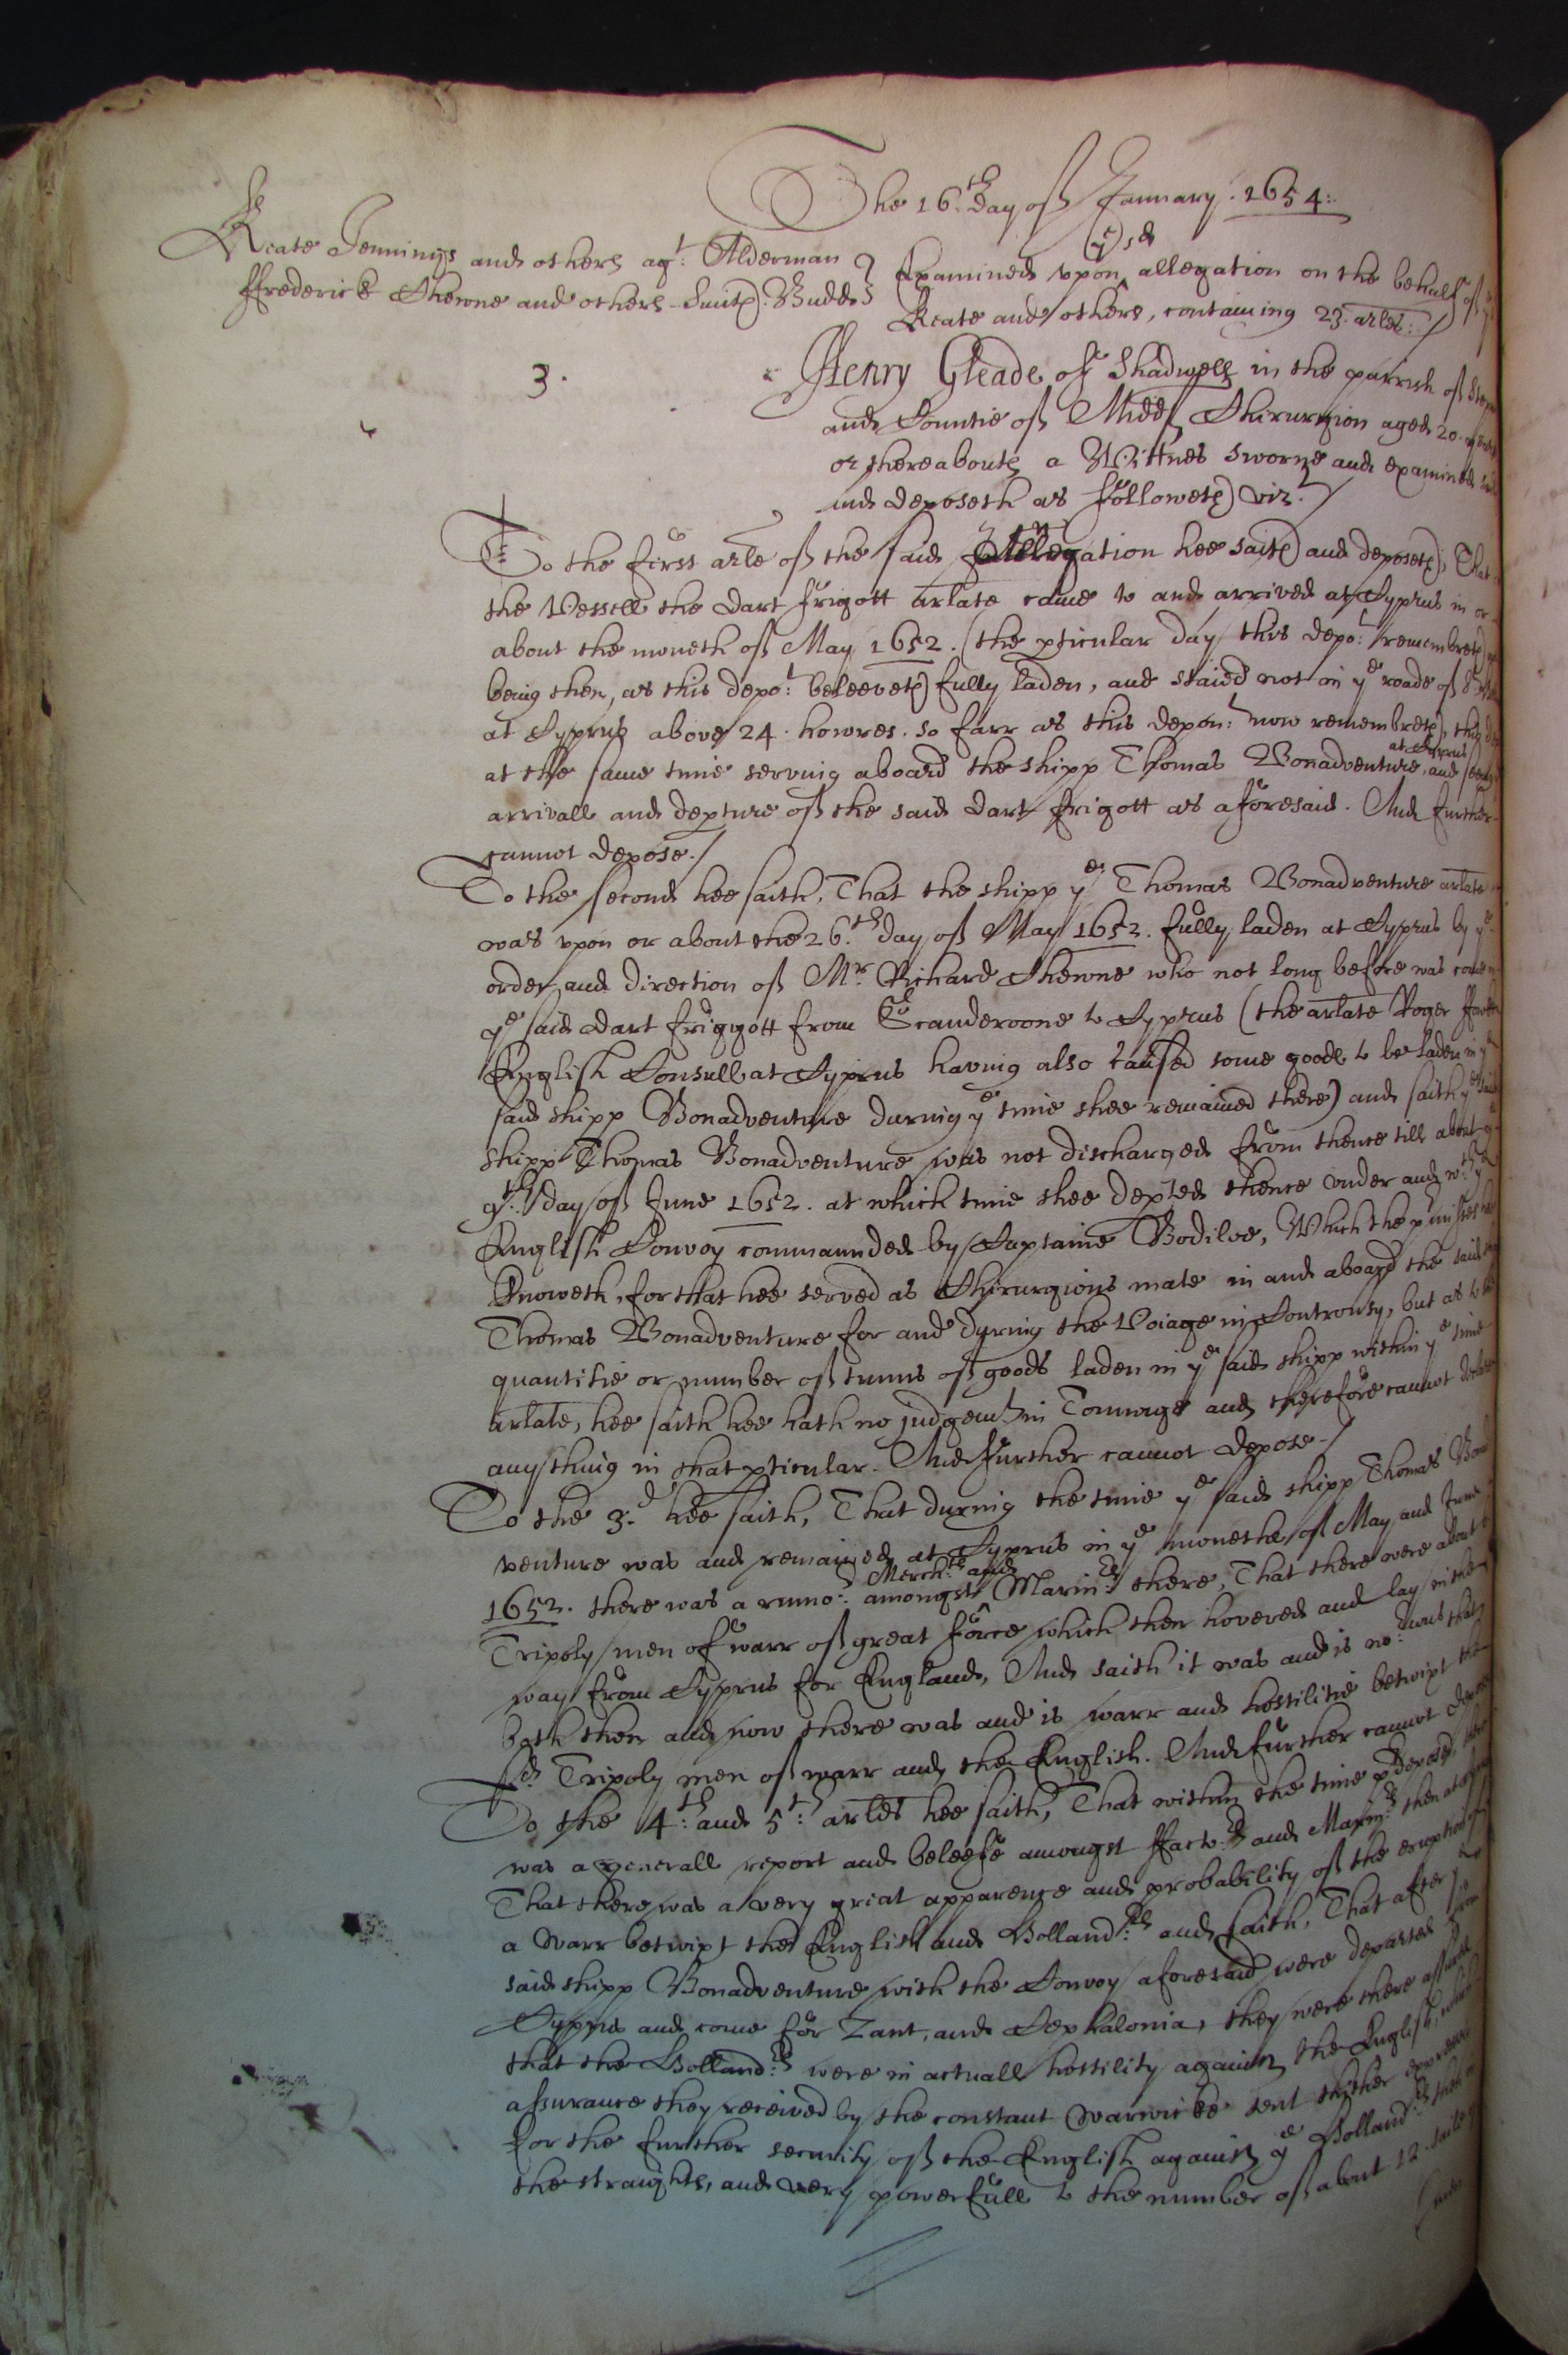 The 16.th day of January. 1654:
Keate Jennings and others agt: Alderman
Frederick Chowne and others Smith: Budd
Examined upon ye sd allegation on the behalf of ye
Keate and others, contayning 23. arles:/
3.
Henry Gleade of Shadwell in the parrish of
and Countie of Midds Chirurgion aged 20. yeares
or thereabouts a Wittnes sworne and examined
and deposeth as followeth vizt/
To the first arle of the said Allegation hee saith and deposeth, That
the Vessell the Dart frigott arlate came to and arrived at Cyprus in or
about the moneth of May 1652. (the pticular day this depot: remembreth
being then, as this depot: beleeveth fully laden, and staied not in ye roade of
at Cyprus above 24. howres. so farr as this depont: now remembreth, this
at the same time serving aboard the shipp Thomas Bonadventure, at Cyprus and
arrivall and depture of the said Dart frigott as aforesaid. And further
cannot depose./
To the second hee saith, That the shipp ye Thomas Bonadventure arlate
was upon or about the 26.th day of May 1652. fully laden at Cyprus by ye
order and direction of Mr. Richard Chowne who not long before was come
ye said Dart friggott from Scanderoone to Cyprus (the arlate Roger
English Consull at Cyprus having also caused some goods to be laden in ye
said shipp Bonadventure during ye time shee remained there) and saith ye said
shipp Thomas Bonadventure was not discharged from thence till about ye
9th. day of June 1652. at which time shee depted thence under and wth. ye
English Convoy commaunded by Captaine Bodiloe, Which the pmisses hee
knoweth, for that hee served as Chirurgions mate in and aboard the said
Thomas Bonadventure for and during the Voiage in Controvsy, but as to the
quantitie or number of tunns of goods laden in ye said shipp within ye time
arlate, hee saith hee hath no judgemt in Tonnage and therefore cannot
anything in that pticular. And further cannot depose./
To the 3d. hee saith, That during the time ye said shipp Thomas
venture was and remained at Cyprus in ye moneths of May and June
1652. there was a rumor: amongst Merchts. and Marinrs there, That there were about
Tripoly men of warr of great force which then hovered and lay in the
way from Cyprus for England, And saith it was and is that
both then and now there was and is warr and hostilitie betwixt the
sd Tripoly men of warr and the English. And further cannot depose
To the 4th: and 5th: arles hee saith, That within the time pdeposed, there
was a generall report and beleefe amongst ffactors and Marinrs then at
That there was a very great apparence and probability of the eruption of
a Warr betwixt the English and Hollandrs: and saith, That after ye
said shipp Bonadventure with the Convoy aforesaid were departed from
Cyprus and come for Zant, and Cephalonia, they were there assured
that the Hollandrs: were in actuall hostility against the English, which
assurance they received by the constant Warwicke sent thither
for the further security of the English against ye Hollandrs: then in
the straights, and very powerfull to the number of about 12. saile